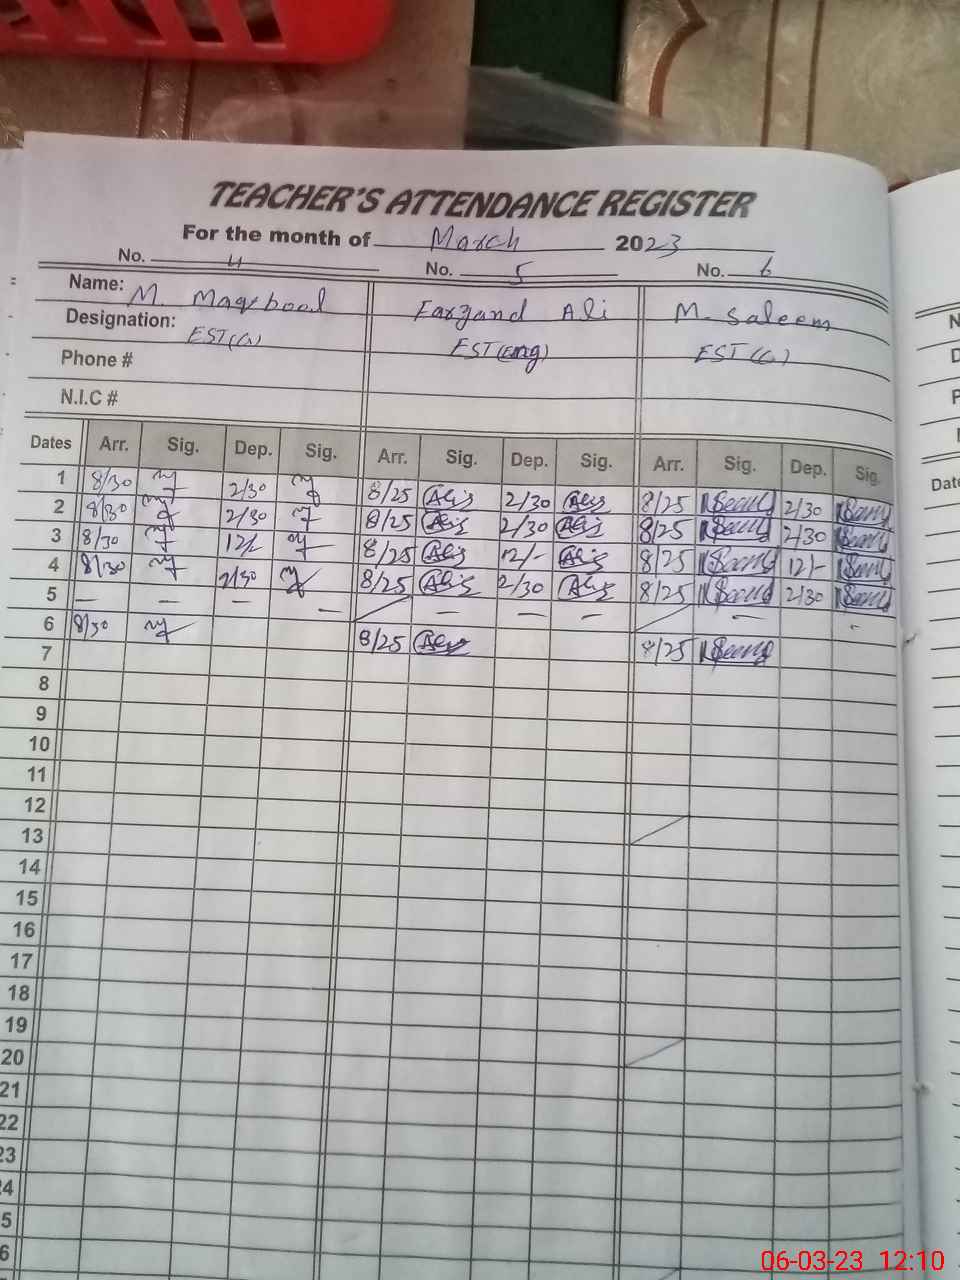 TEACHER'S ATTENDANCE REGISTER
For the month of March 2023
No. 4 No. 5 No. 6
Name: M. Maqsbool Farzand Ali M. Saleem
Designation: EST(G) EST(Eng) EST(G)
Phone #
N.I.C #
Dates Arr. Sig. Dep. Sig. Arr. Sig. Dep. Sig. Arr. Sig. Dep. Sig.
1 8/30 2/30 8/25 Ali 2/30 Ali 8/25 2/30
2 8/30 2/30 8/25 Ali 2/30 Ali 8/25 2/30
3 8/30 12/- 8/25 Ali 12/- Ali 8/25 12/-
4 8/30 2/30 8/25 Ali 2/30 Ali 8/25 2/30
5 — — — — — — — —
6 8/30 8/25 Ali 8/25
7
8
9
10
11
12
13
14
15
16
17
18
19
20
21
22
23
24
5
6
Date
06-03-23 12:10